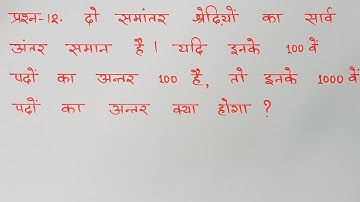 प्रश्न-12. दो समांतर श्रेढ़ियों का सार्व
अंतर समान है। यदि इनके 100 वें
पदों का अन्तर 100 है, तो इनके 1000 वें
पदों का अन्तर क्या होगा ?